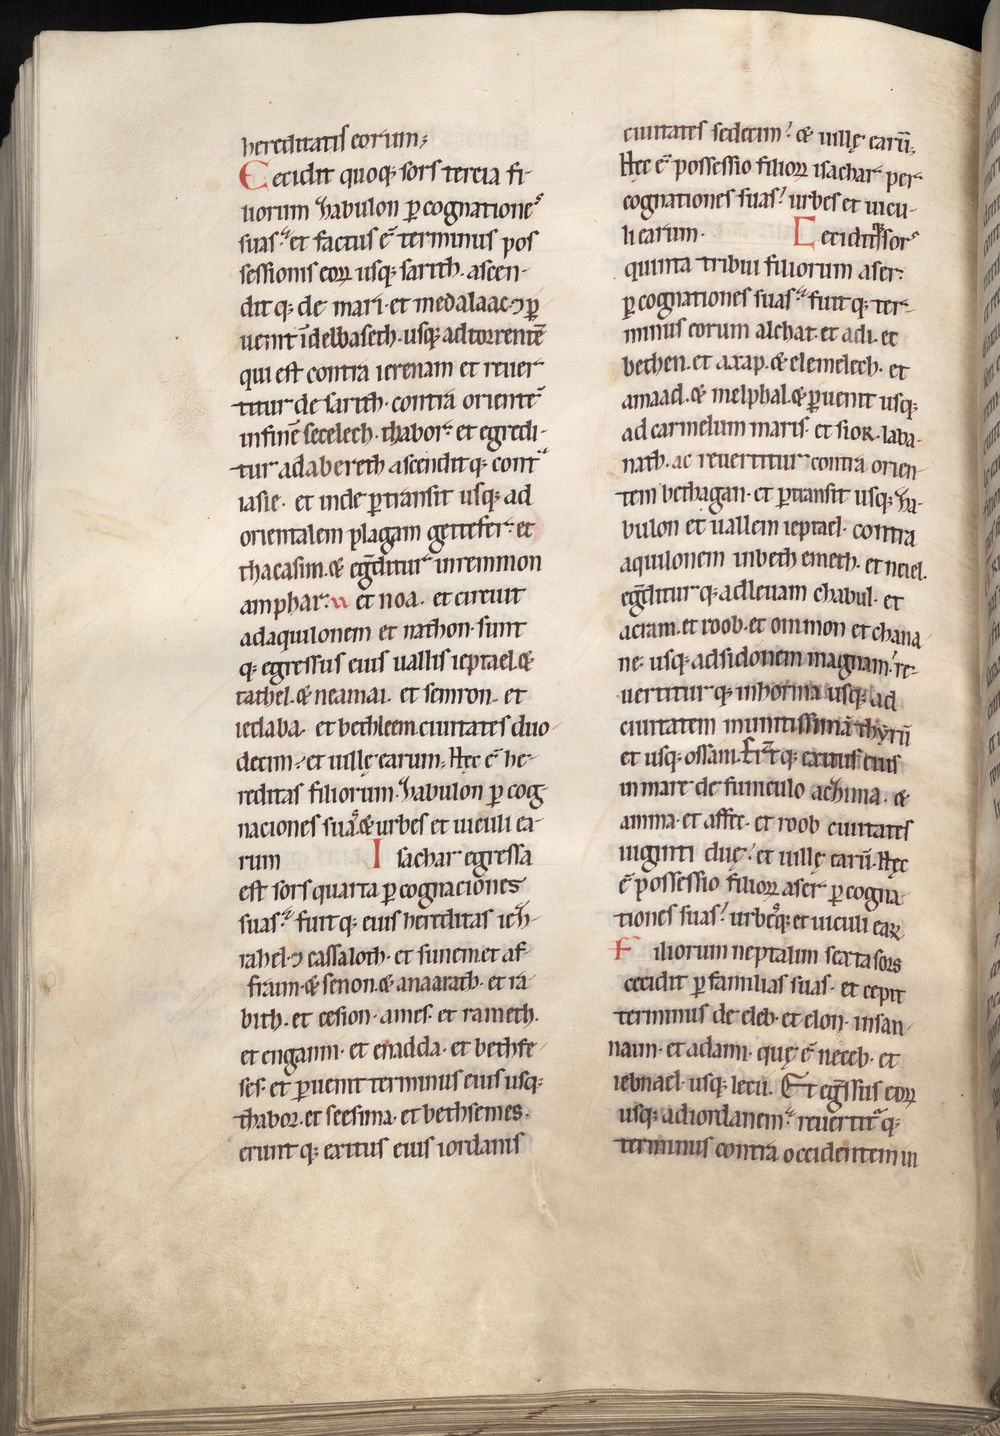 hereditatis eorum;
Cecidit quoq; sors tercia fi-
liorum zabulon p̱ cognatione
suas. et factus ē terminus pos
sessionis eoꝝ usq; sarith. ascen-
dit q; de mari. et medalaac. ⁊ p̱
uenit ī debbaseth. usq; ad torrentē
qui est contra ierenam et reuer
titur de sarith. contra orientē
in finē secelech. thabor. et egredi-
tur ad abereth ascendit q; cont
iasie. et inde p̱transit usq; ad
orientalem plagam gettefer. et
thacasim. & egr̄ditur in remmon
amphar. et noa. et circuit
ad aquilonem et nathon. sunt
q; egressus eius uallis ieptael. &
cathel. & neamai. et semron. et
iedaba. et bethleem ciuitates duo
decim. et uillę earum; Hęc ē he-
reditas filiorum zabulon p̱ cog
naciones suas. & urbes et uiculi ea-
rum Isachar egressa
est sors quarta p̱ cognaciones
suas. fuit q; eius hereditas iez-
rahel. ⁊ cassaloth. et sunem. et af-
fraim. & senon. & anaarath. et ra
bith. et cesion. ames. et rameth.
et enganni. et enadda. et bethfe
ses. et p̱uenit terminus eius usq;
thabor. et seesima. et bethsemes.
erunt q; exitus eius iordanis
ciuitates sedecim. & uillę earū;
Hęc ē possessio filioꝝ isachar per
cognationes suas. urbes et uicu-
li earum. Cecidit q; sors
quinta tribui filiorum aser.
p̱ cognationes suas. fuit q; ter-
minus eorum alchat. et adi. et
bethen. et axap. & elemelech. et
amaad. & melphal. & p̱uenit usq;
ad carmelum maris. et sior. laba-
nath. ac reuertitur contra orien
tem bethagan. et p̱transit usq; za-
bulon et uallem ieptael. contra
aquilonem in beth emeth. et neiel.
egr̄ditur q; ad leuam chabul. et
acram. et roob. et ommon et chana
ne. usq; ad sidonem magnam. re-
uertitur q; in horma usq; ad
ciuitatem munitissimā thyrū
et usq; ossam. Erūt q; exitus eius
in mare de funiculo achzima. &
amma. et affec. et roob ciuitates
uiginti duę. et uillę earū. Hęc
ē possessio filioꝝ aser p̱ cogna
tiones suas. urbesq; et uiculi eaꝝ
Filiorum neptalim sexta sors
cecidit p̱ familias suas. et cepit
terminus de eleb. et elon. in san-
naim. et adami. quę ē neceb. et
iebnael. usq; lecū. Et egr̄ssus eoꝝ
usq; ad iordanem. reuertit̄ q;
terminus contra occidentem in